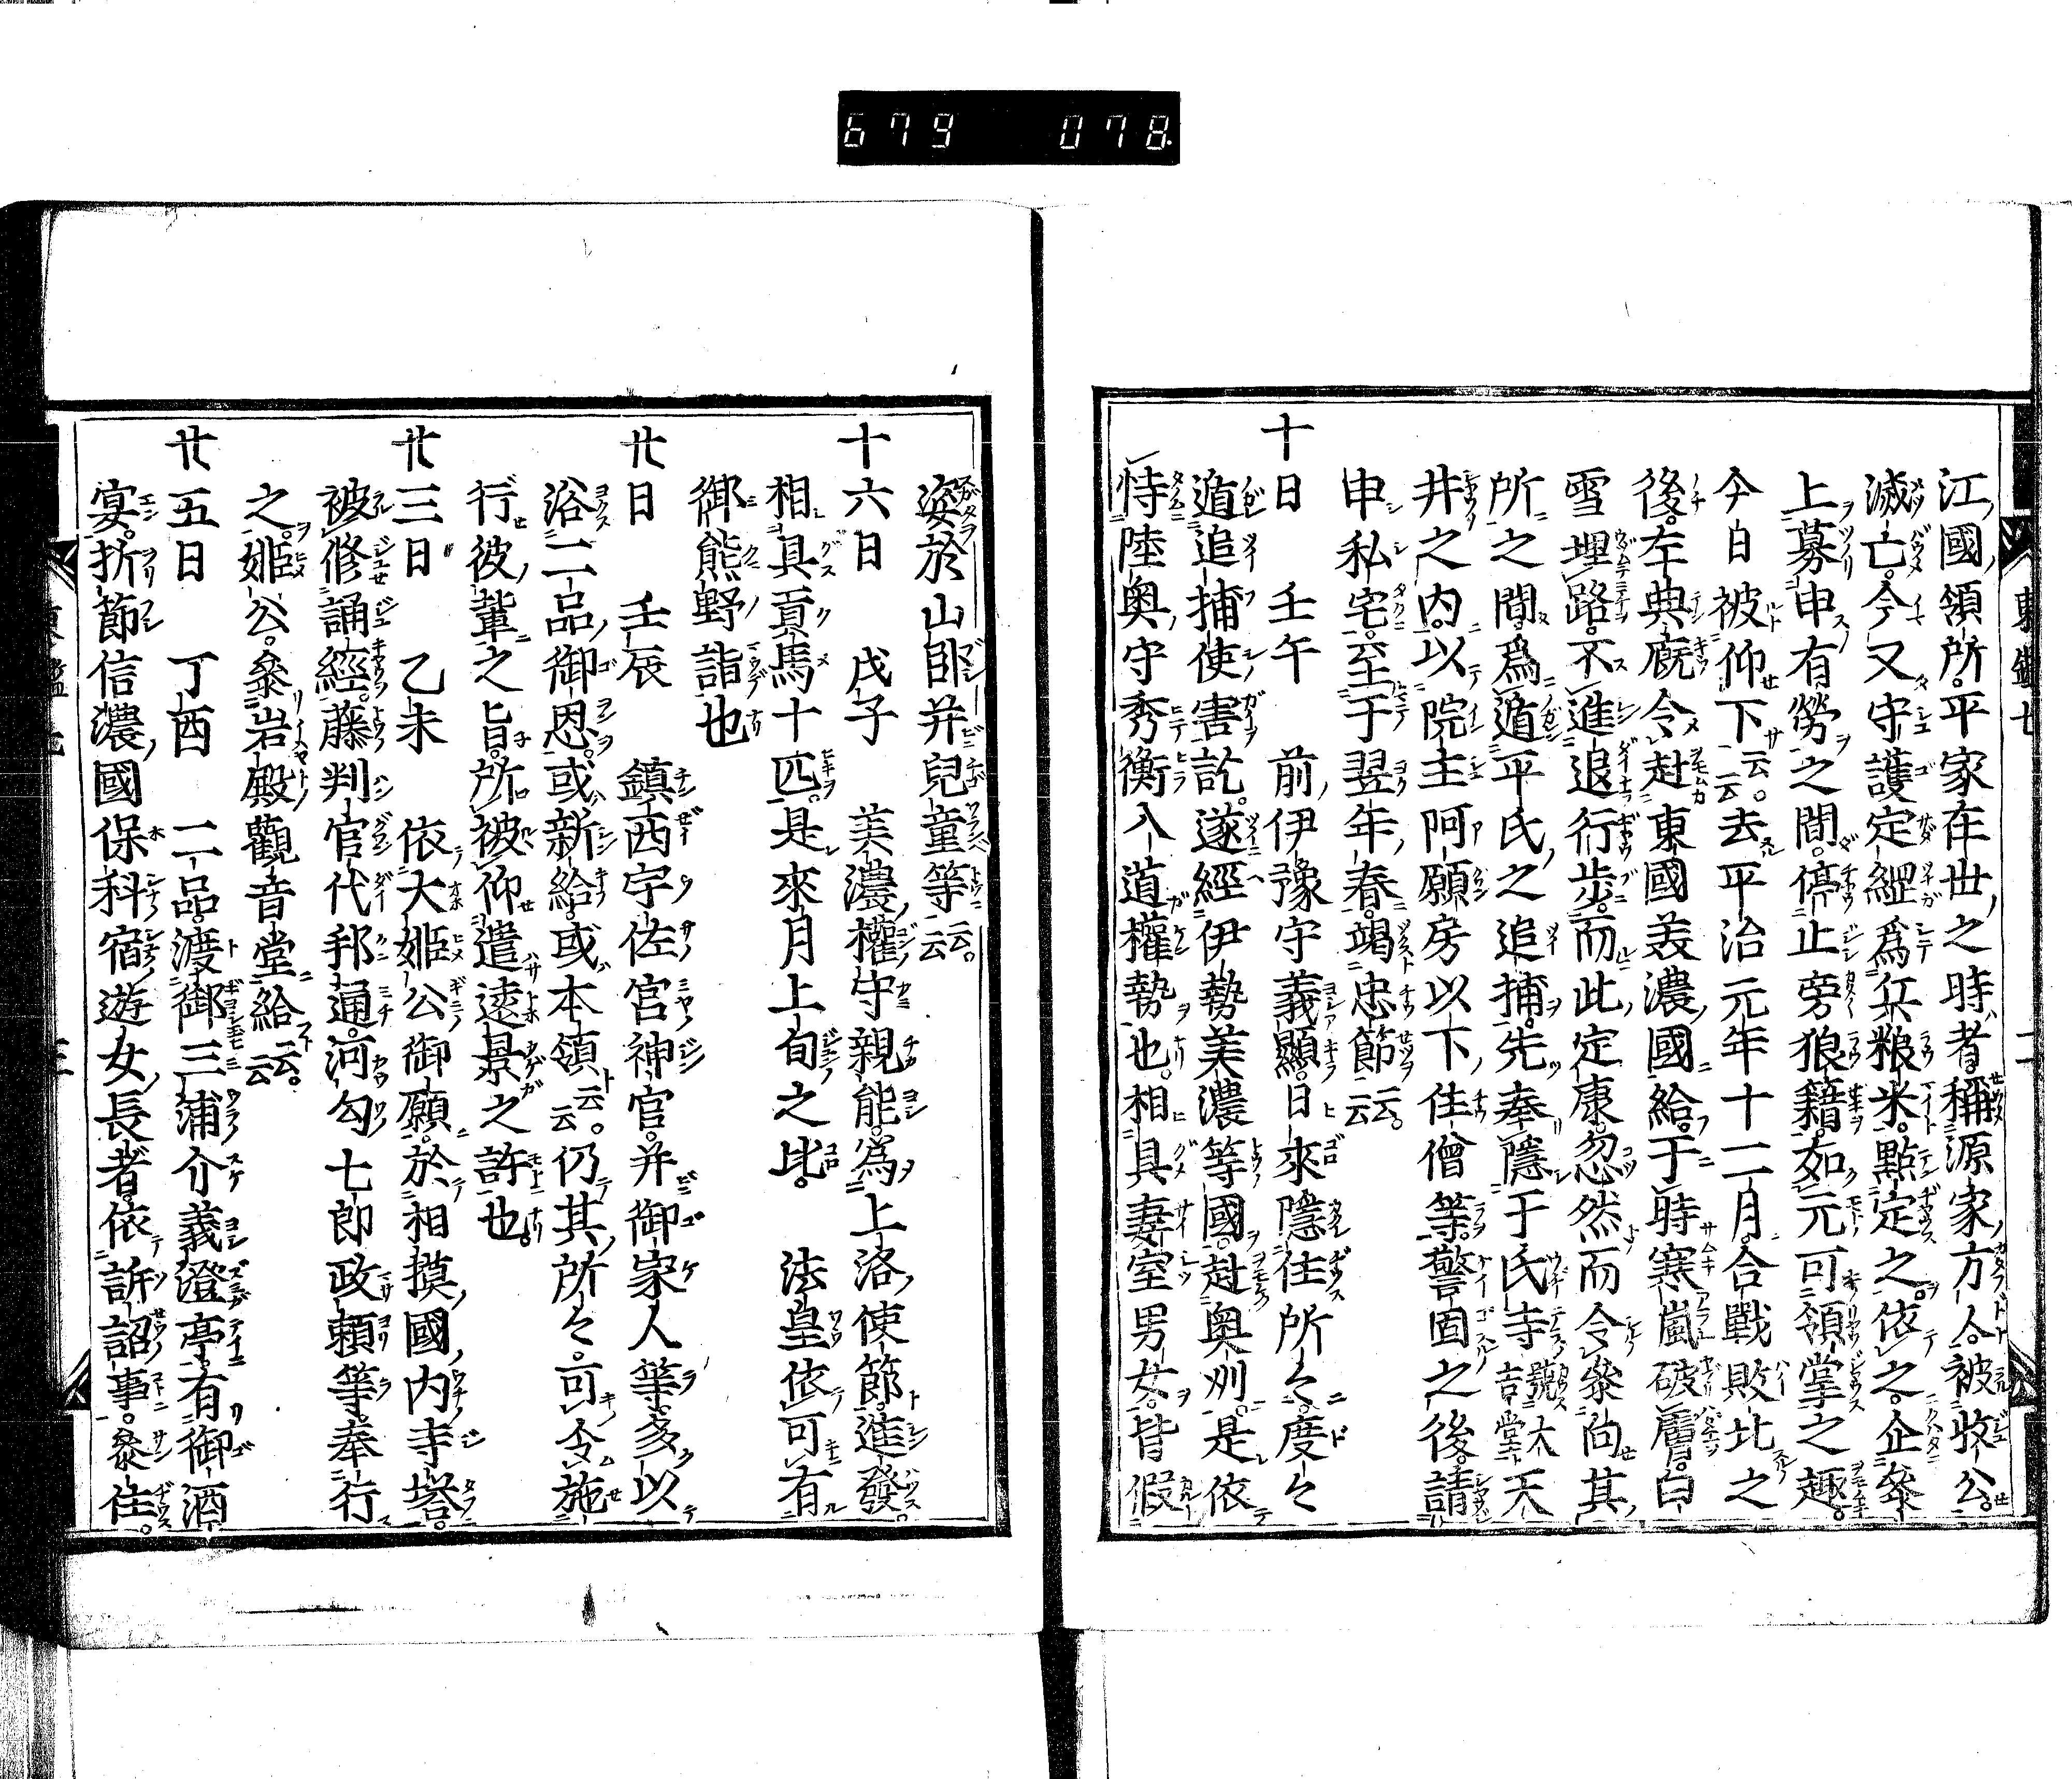 679 078
江國領所平家在世之時者稱源家方人被收公
滅亡今又守護定綱爲兵粮米點定之依之企參
上募申有勞之間停止旁狼籍如元可領掌之趣
今日被仰下云云去平治元年十二月合戰敗北之
後左典廐令赴東國美濃國給于時寒嵐破膚白
雪埋路不進退行步而此定康忽然而令參向其
所之間爲遁平氏之追捕先奉隱于氏寺號大吉堂天
井之內以院主阿願房以下住僧等警固之後請
申私宅至于翌年春竭忠節云云
十日 壬午 前伊豫守義顯日來隱住所々度々
遁追捕使害訖遂經伊勢美濃等國赴奥州是依
恃陸奥守秀衡入道權勢也相具妻室男女皆假
姿於山臥并兒童等云云
十六日 戊子 美濃權守親能爲上洛使節進發
相具貢馬十匹是來月上旬之比 法皇依可有
御熊野詣也
廿日 壬辰 鎮西宇佐宮神官并御家人等多以
浴二品御恩或新給或本領云云仍其所々可令施
行彼輩之旨所被仰遣遠景之許也
廿三日 乙未 依大姬公御願於相摸國內寺塔
被修誦經藤判官代邦通河勾七郎政頼等奉行
之姬公參岩殿觀音堂給云云
廿五日 丁酉 二品渡御三浦介義澄亭有御酒
宴折節信濃國保科宿遊女長者依訴詔事參住